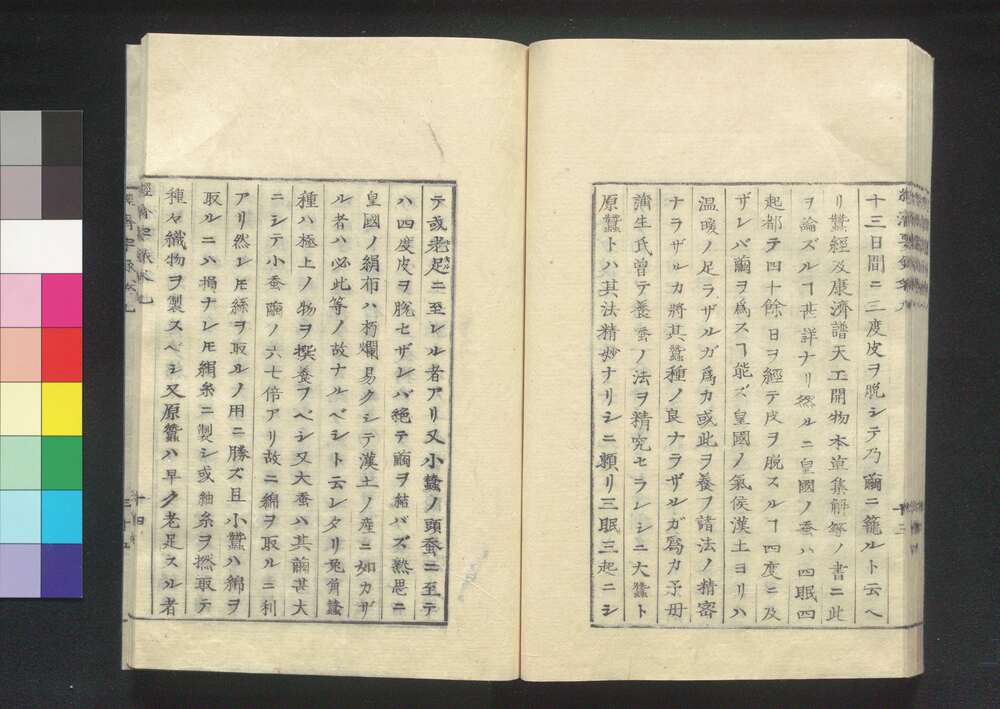 十三日間ニ三度皮ヲ脱シテ乃繭ニ籠ルト云ヘ
リ蠶經及康濟譜天工開物本草集解等ノ書ニ此
ヲ論ズルヿ甚詳ナリ然ルニ皇國ノ蚕ハ四眠四
起都テ四十餘日ヲ經テ皮ヲ脱スルヿ四度ニ及
ザレバ繭ヲ爲スヿ能ズ皇國ノ氣侯漢土ヨリハ
温暖ノ足ラザルガ爲カ或此ヲ養フ諸法ノ精審
ナラザルカ將其蠶種ノ良ナラザルガ爲カ予毋
蒲生氏曾テ養蚕ノ法ヲ精究セラレシニ大蠶ト
原蠶トハ其法精妙ナリシニ頼リ三眠三起ニシ
テ或老足ニ至レル者アリ又小蠶ノ頭蚕ニ至テ
ハ四度皮ヲ脱セザレバ絶テ繭ヲ結バズ熟思ニ
皇國ノ絹布ハ朽爛易クシテ漢土ノ産ニ如カザ
ル者ハ必此等ノ故ナルベシト云レタリ兎角蠶
種ハ極上ノ物ヲ撰養フベシ又大蚕ハ其繭甚大
ニシテ小蚕繭ノ六七倍アリ故ニ綿ヲ取ルニ利
アリ然レ𪜈絲ヲ取ルノ用ニ勝ズ且小蠶ハ綿ヲ
取ルニハ損ナレ𪜈絹糸ニ製シ或紬糸ヲ撚取テ
種々織物ヲ製スベシ又原蠶ハ早ク老足スル者